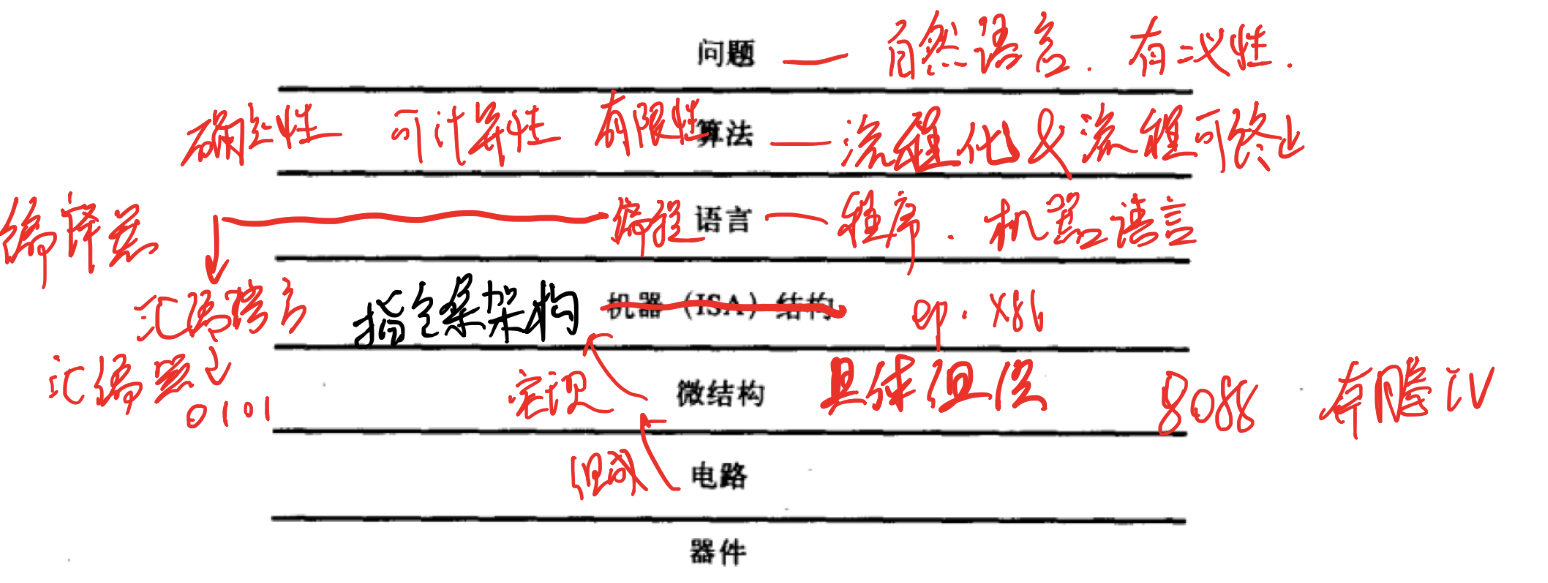 问题 — 自然语言. 有二义性.
确定性 可计算性 有限性 算法 — 流程化 & 流程可终止
编程 语言 — 程序. 机器语言
编译器
汇编语言 指令集架构 机器（ISA）结构 ep. X86
汇编器
0101
实现 微结构 具体组织 8088 奔腾IV
组成 电路
器件